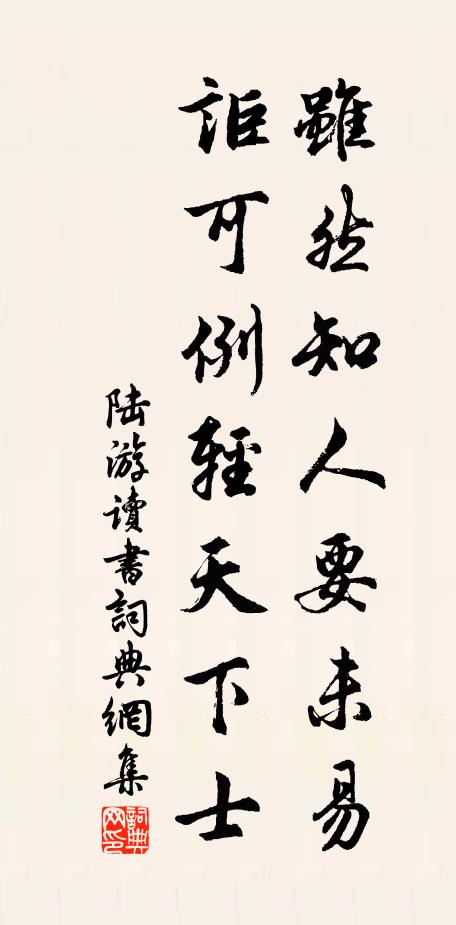 雖然知人要未易
詎可例輕天下士
陆游讀書詞典網集
詞典
网印